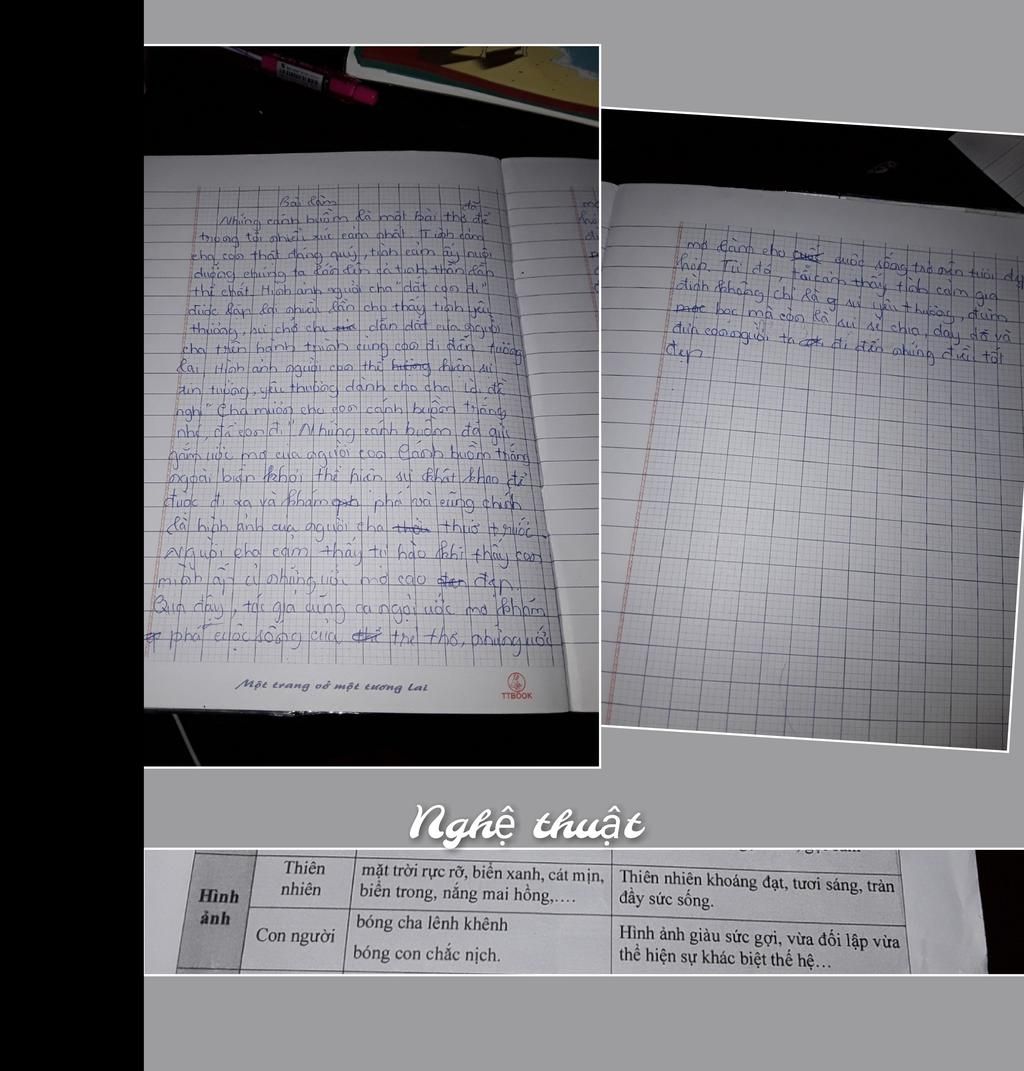 Bài làm
Những cánh buồm là một bài thơ đã để
trong tôi nhiều xúc cảm nhất. Tình cảm
cha con thật đáng quý, tình cảm ấy nuôi
dưỡng chúng ta lớn lên cả tinh thần lẫn
thể chất. Hình ảnh người cha "dắt con đi"
được lặp lại nhiều lần cho thấy tình yêu
thương, sự chở che dẫn dắt của người
cha trên hành trình cùng con đi đến tương
lai. Hình ảnh người con thể hiện sự
tin tưởng, yêu thương dành cho cha lời đề
nghị "Cha mượn cho con cánh buồm trắng
nhé, để con đi". Những cánh buồm đã gửi
gắm ước mơ của người con. Cánh buồm trắng
ngoài biển khơi thể hiện sự khát khao để
được đi xa và khám phá và cũng chính
là hình ảnh của người cha thuở trước.
Người cha cảm thấy tự hào khi thấy con
mình ấp ủ những ước mơ cao đẹp.
Qua đây, tác giả cũng ca ngợi ước mơ khám
phá cuộc sống của trẻ thơ, những ước
mơ làm cho cuộc sống trở nên tươi đẹp
hơn. Từ đó, tôi cảm thấy tình cảm gia
đình không chỉ là sự yêu thương, đùm
bọc mà còn là sự sẻ chia, dạy dỗ và
đưa con người ta đi đến những điều tốt
đẹp
Một trang vở một tương lai
TTBOOK
Nghệ thuật
Hình ảnh
Thiên nhiên
mặt trời rực rỡ, biển xanh, cát mịn,
biển trong, nắng mai hồng,....
Thiên nhiên khoáng đạt, tươi sáng, tràn
đầy sức sống.
Con người
bóng cha lênh khênh
bóng con chắc nịch.
Hình ảnh giàu sức gợi, vừa đối lập vừa
thể hiện sự khác biệt thế hệ…